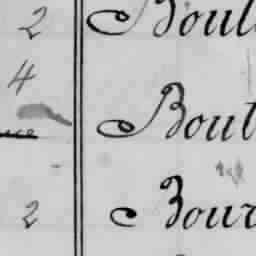 2 Boul
4
Bout
2 Bour